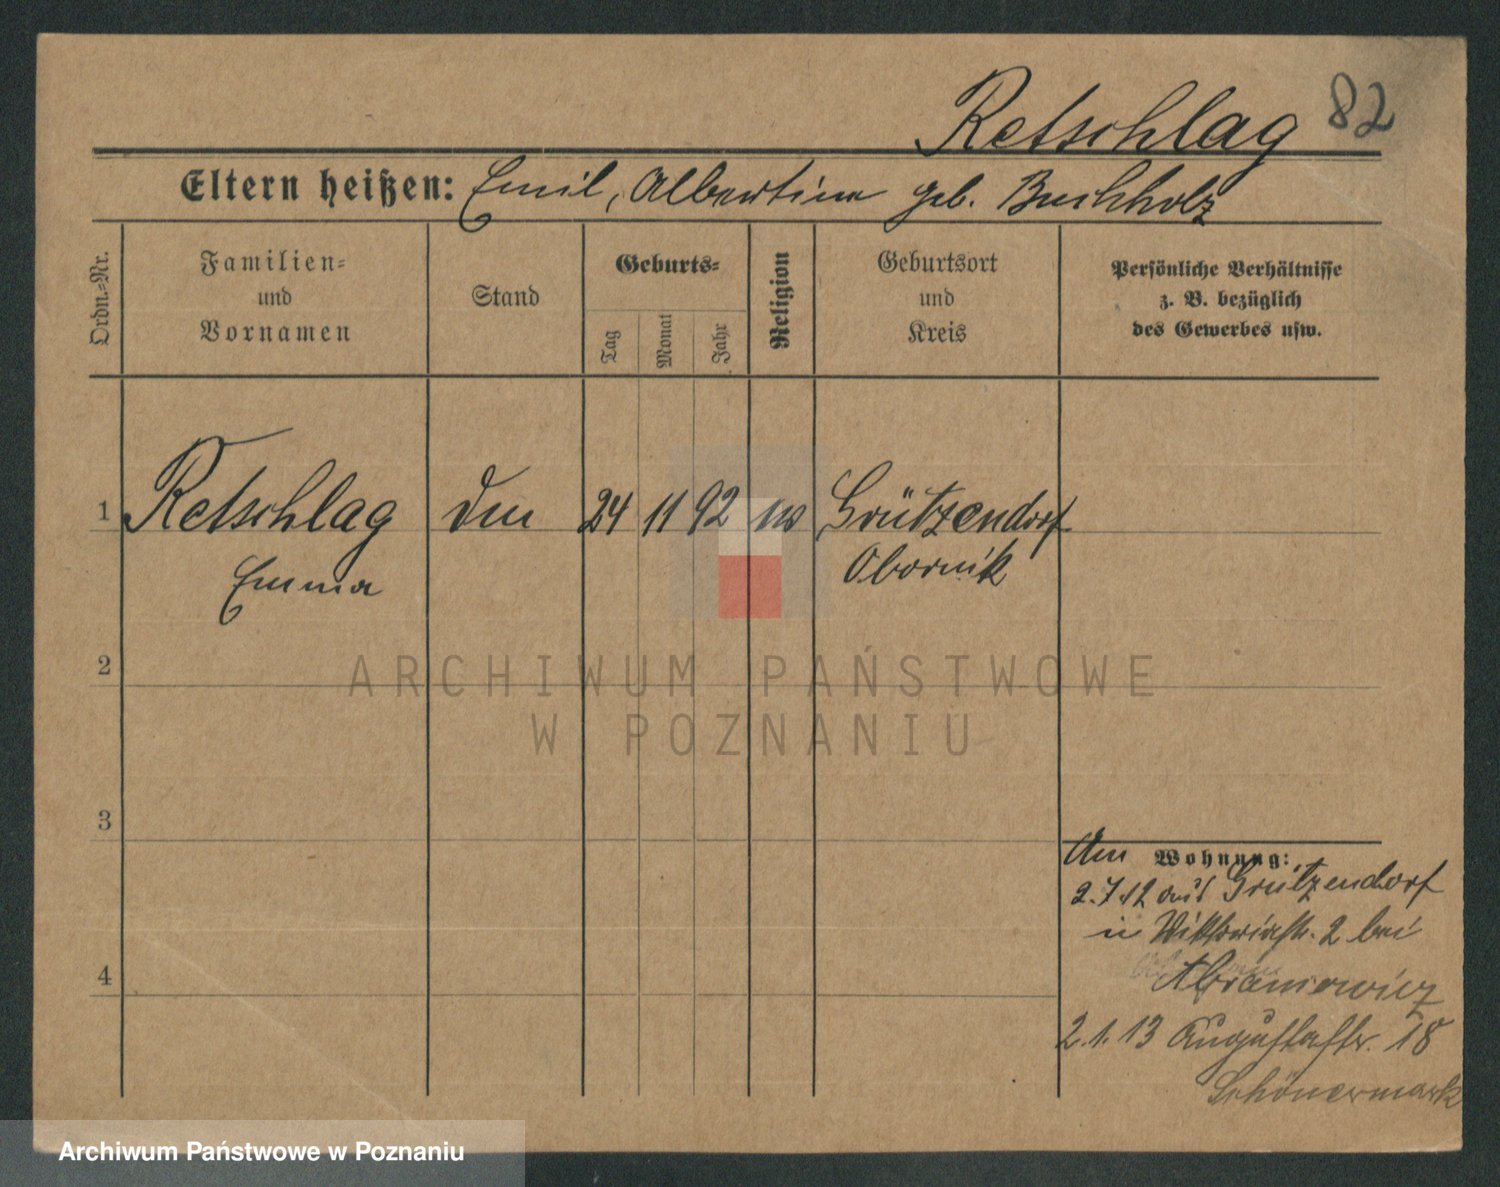 Retschlag 82
Eltern heißen: Emil, Albertine geb. Buchholz
Ordn.-Nr.
Familien-
und
Vornamen
Stand
Geburts-
Tag
Monat
Jahr
Religion
Geburtsort
und
Kreis
Persönliche Verhältnisse
z. B. bezüglich
des Gewerbes usw.
1 Retschlag 24 11 92 Grützendorf
Emma Obornik
2
ARCHIWUM PAŃSTWOWE
W POZNANIU
3
Am Wohnung:
2.7.12 aus Grützendorf
in Viktoriastr. 2 bei
Abramowicz
4
2.1.13 Augustastr. 18
Schönermark
Archiwum Państwowe w Poznaniu